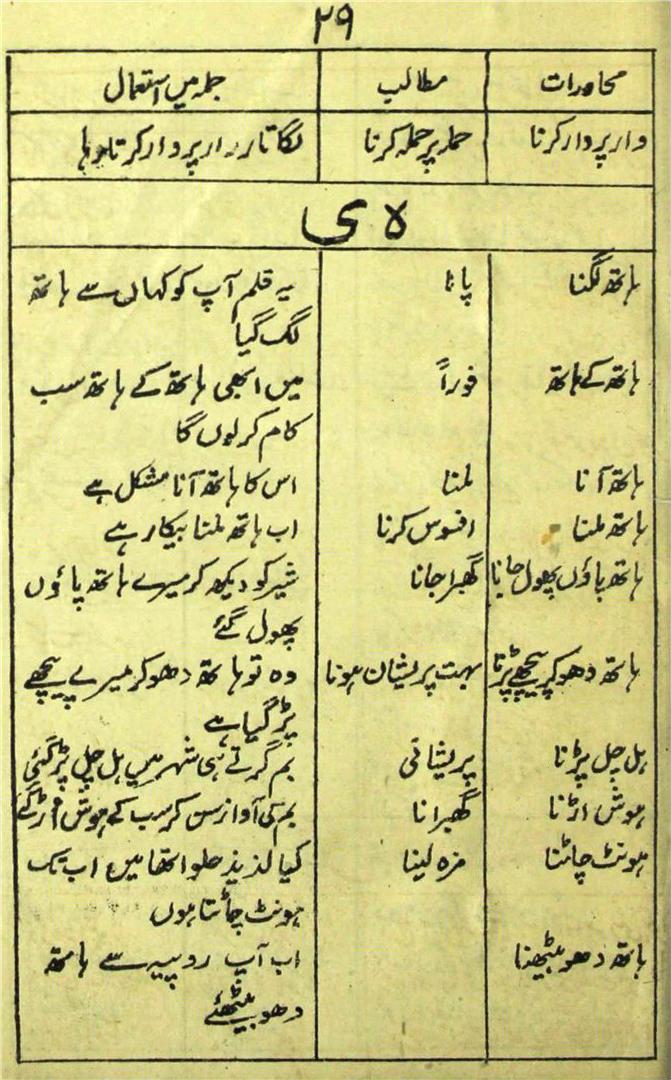 ۲۹
محاورات مطالب جملہ میں استعمال
وار پر وار کرنا حملہ پر حملہ کرنا لگاتار وار پر وار کرتا رہا
ہ ی
ہاتھ لگنا پانا یہ قلم آپ کو کہاں سے ہاتھ
لگ گیا
ہاتھ کے ہاتھ فوراً میں ابھی ہاتھ کے ہاتھ سب
کام کر لوں گا
ہاتھ آنا ملنا اس کا ہاتھ آنا مشکل ہے
ہاتھ ملنا افسوس کرنا اب ہاتھ ملنا بیکار ہے
ہاتھ پاؤں پھول جانا گھبرا جانا شیر کو دیکھ کر میرے ہاتھ پاؤں
پھول گئے
ہاتھ دھو کر پیچھے پڑنا بہت پریشان ہونا وہ تو ہاتھ دھو کر میرے پیچھے
پڑ گیا ہے
ہل چل پڑنا پریشانی بم گرتے ہی شہر میں ہل چل پڑ گئی
ہوش اڑنا گھبرانا بم کی آواز سن کر سب کے ہوش اڑ گئے
ہونٹ چاٹنا مزہ لینا کیا لذیذ حلوا تھا میں اب تک
ہونٹ چاٹتا ہوں
ہاتھ دھو بیٹھنا اب آپ روپیہ سے ہاتھ
دھو بیٹھئے